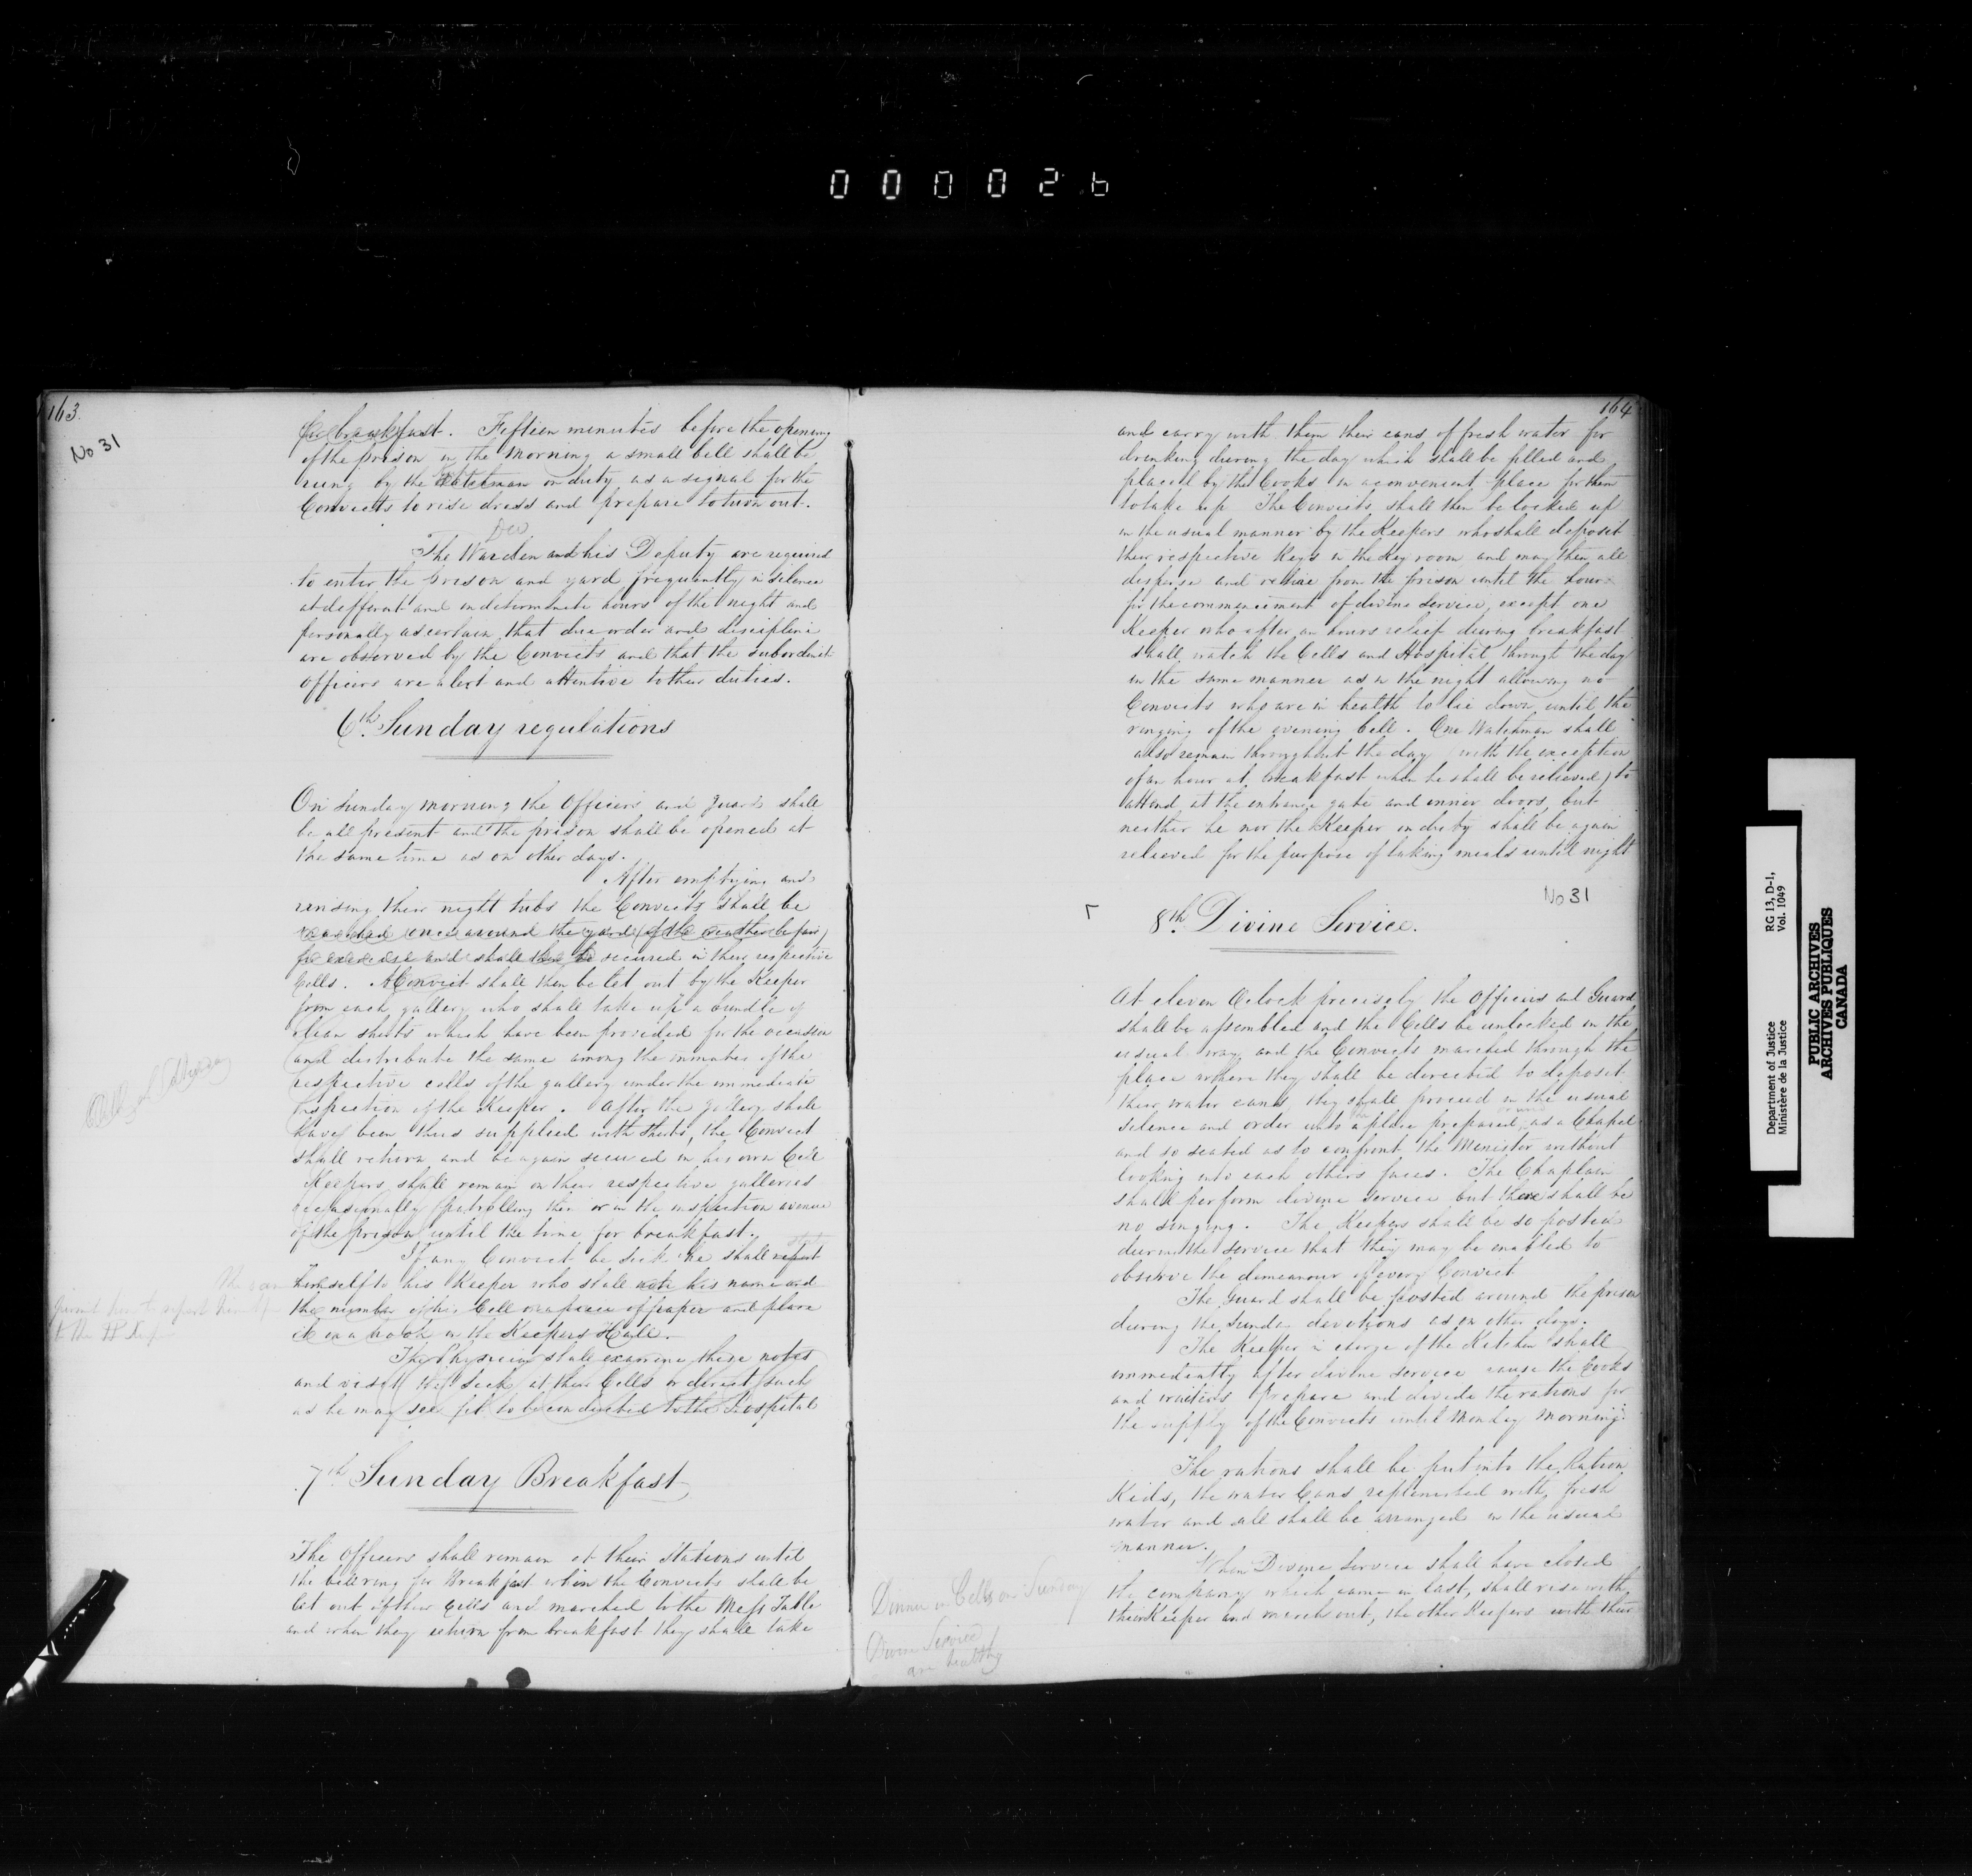 000026
163.
No 31
for breakfast. Fifteen minutes before the opening
of the prison in the morning a small bell shall be
rung by the Watchman on duty as a signal for the
Convicts to rise dress and prepare to turn out.
The Warden and his Deputy are required
to enter the prison and yard frequently in silence
at different and indeterminate hours of the night and
personally ascertain that due order and discipline
are observed by the Convicts and that the subordinate
Officers are alert and attentive to their duties.
6th. Sunday regulations
On Sunday morning the Officers and Guards shall
be all present and the prison shall be opened at
the same time as on other days.
After emptying and
rinsing their night tubs the Convicts shall be
marched once around the yard (if the weather be fair)
for exercise and shall then be secured in their respective
Cells. A Convict shall then be let out by the Keeper
from each gallery who shall take up a bundle of
clean shirts which have been provided for the occasion
and distribute the same among the inmates of the
respective cells of the gallery under the immediate
inspection of the Keeper. After the gallery shall
have been thus supplied with shirts, the Convict
shall return and be again secured in his own Cell
Keepers shall remain on their respective galleries
occasionally patrolling them or in the inspection avenue
of the prison until the time for breakfast.
If any Convict be sick he shall report
himself to his Keeper who shall note his name and
the number of his Cell on a piece of paper and place
it in a book in the Keepers Hall.
The Physician shall examine these notes
and visit the sick at their Cells or direct such
as he may see fit to be conducted to the Hospital
7th Sunday Breakfast
The Officers shall remain at their Stations until
the bell rung for Breakfast when the Convicts shall be
let out of their Cells and marched to the Mess Table
and when they return from breakfast they shall take
164
and carry with them their cans of fresh water for
drinking during the day which shall be filled and
placed by the Cooks in a convenient place for them
to take up The Convicts shall then be locked up
in the usual manner by the Keepers who shall deposit
their respective Keys in the Key room and may then all
disperse and retire from the prison until the hour
for the commencement of divine Service, except one
Keeper who after an hours relief during breakfast
shall watch the Cells and Hospital through the day
in the same manner as in the night allowing no
Convicts who are in health to lie down until the
ringing of the evening bell. One Watchman shall
also remain throughout the day (with the exception
of an hour at breakfast when he shall be relieved) to
attend at the entrance gate and inner doors, but
neither he nor the Keeper on duty shall be again
relieved for the purpose of taking meals until night
No 31
8th. Divine Service.
At eleven Oclock precisely the Officers and Guard
shall be assembled and the Cells be unlocked in the
usual way and the Convicts marched through the
place where they shall be directed to deposit
their water cans, they shall proceed in the usual
silence and order into a place prepared, as a Chapel
and so seated as to confront the Minister without
looking into each others faces. The Chaplain
shall perform divine service but there shall be
no singing. The Keepers shall be so posted
during the service that they may be enabled to
observe the demeanour of every Convict
The Guard shall be posted around the prison
during the Sunday devotions as on other days.
The Keeper in charge of the Kitchen shall
immediately after divine service cause the Cooks
and waiters prepare and divide the rations for
the supply of the Convicts until Monday Morning.
The rations shall be put into the Ration
Kids, the water Cans replenished with fresh
water and all shall be arranged in the usual
manner.
When Divine Service shall have closed
the company which came in last, shall rise with
their Keeper and march out, the other Keepers with their
Dinner in Cells on Sunday
Divine Service
are healthy
Department of Justice
Ministère de la Justice
RG 13, D-1,
Vol. 1049
PUBLIC ARCHIVES
ARCHIVES PUBLIQUES
CANADA